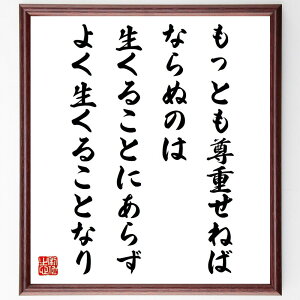 もっとも尊重せねば
ならぬのは
生くることにあらず
よく生くることなり